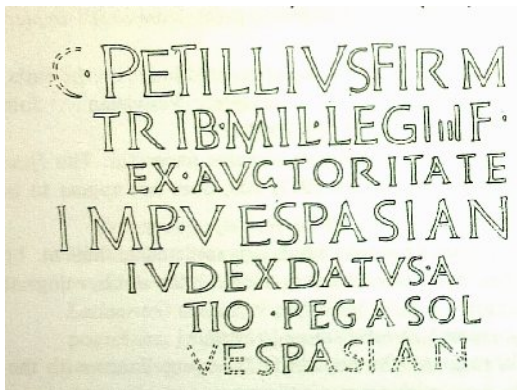 C·PETILLIVSFIRM
TRIB·MIL·LEGIIIIF·
EX·AVCTORITATE
IMP·VESPASIAN
IVDEXDATVS·A
TIO·PEGASOL
VESPASIAN